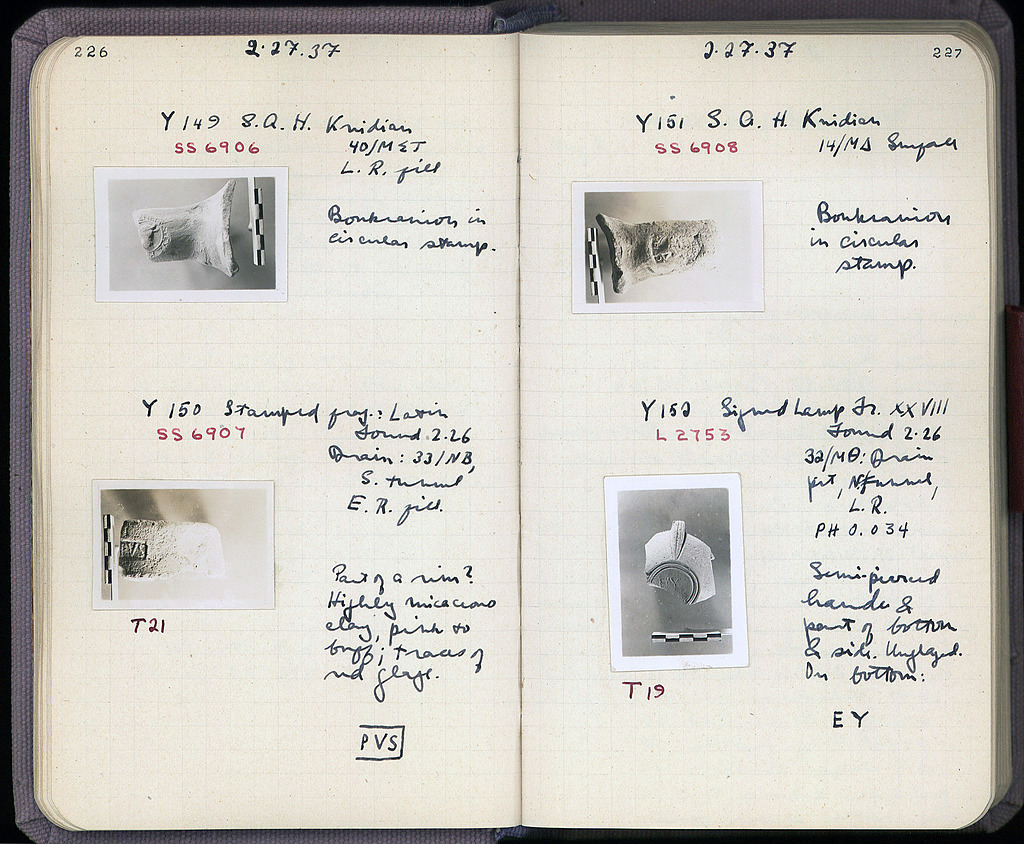 226
2·27·37
Y 149 S. A. H. Knidian
SS 6906
40/ΜΣΤ
L. R. fill
Boukranion in
circular stamp.
Y 150 Stamped frag.: Latin
SS 6907
Found 2.26
Drain: 33/ΝΒ,
S. tunnel
E. R. fill.
PVS
T 21
Part of a rim?
Highly micaceous
clay, pink to
buff; traces of
red glaze.
PVS
2·27·37
227
Y 151 S. A. H. Knidian
SS 6908
14/ΜΔ Surface
Boukranion
in circular
stamp.
Y 152 Signed Lamp Fr. XXVIII
L 2753
Found 2.26
32/ΜΘ: Drain
pit, N. tunnel,
L. R.
PH 0.034
T 19
Semi-pierced
handle &
part of bottom
& side. Unglazed.
On bottom:
ΕΥ